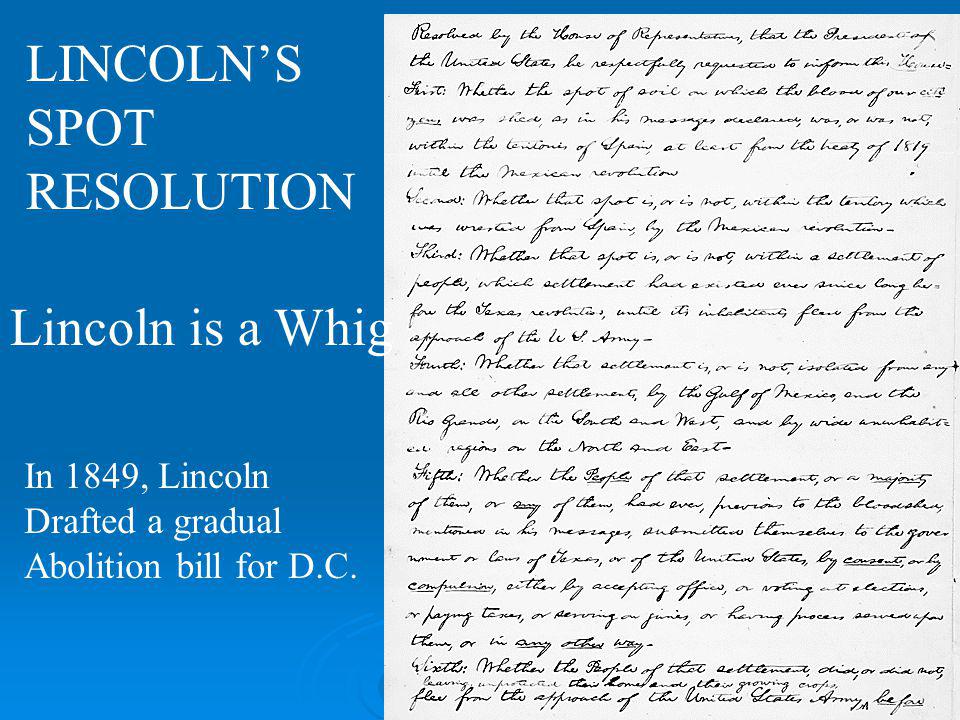 LINCOLN’S
SPOT
RESOLUTION
Lincoln is a Whig
In 1849, Lincoln
Drafted a gradual
Abolition bill for D.C.
Resolved by the House of Representatives, that the President of
the United States be respectfully requested to inform this House-
First: Whether the spot of soil on which the blood of our citi-
zens was shed, as in his messages declared, was, or was not,
within the teritories of Spain, at least from the treaty of 1819
until the Mexican revolution
Second: Whether that spot is, or is not, within the teritory which
was wrested from Spain, by the Mexican revolution-
Third: Whether that spot is, or is not, within a settlement of
people, which settlement had existed ever since long be-
fore the Texas revolution, until its inhabitants fled from the
approach of the U S. Army-
Fourth: Whether that settlement is, or is not, isolated from any
and all other settlements, by the Gulf of Mexico, and the
Rio Grande, on the South and West, and by wide uninhabit-
ed regions on the North and East-
Fifth: Whether the People of that settlement, or a majority
of them, or any of them, had ever, previous to the bloodshed,
mentioned in his messages, submitted themselves to the gover
nment or laws of Texas, or of the United States, by consent, or by
compulsion, either by accepting office, or voting at elections,
or paying taxes, or serving on juries, or having process served upon
them, or in any other way-
Sixth: Whether the People of that settlement, did, or did not,
leaving unprotected their homes and their growing crops,
flee from the approach of the United States Army, before